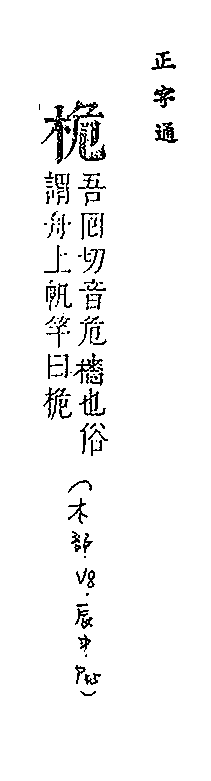 正字通
桅
吾囘切音危檣也俗
謂舟上帆竿曰桅
(木部.V8.辰中.P45)